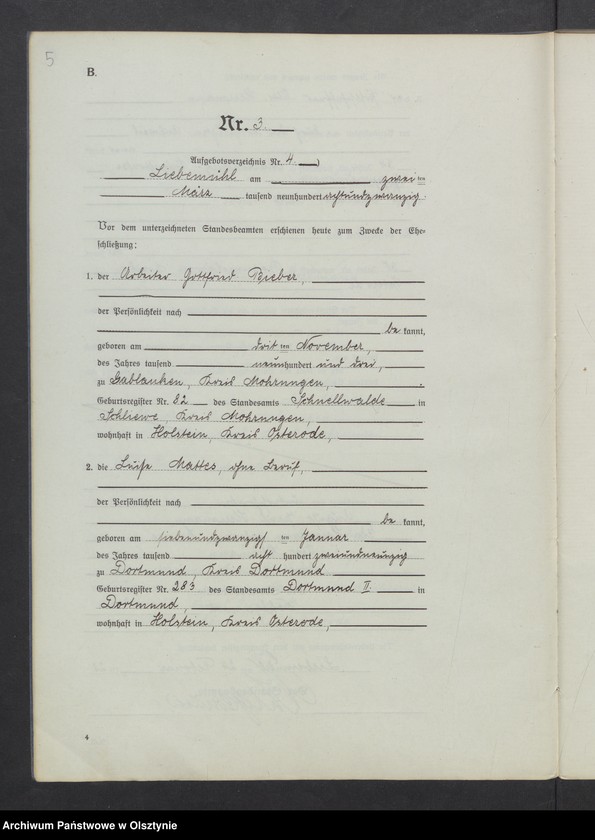 5
B.
Nr. 3
Aufgebotsverzeichnis Nr. 4
Liebemühl am zwei ten
März tausend neunhundert achtundzwanzig.
Vor dem unterzeichneten Standesbeamten erschienen heute zum Zwecke der Ehe-
schließung:
1. der Arbeiter Gottfried Bieber,
der Persönlichkeit nach
be kannt,
geboren am dritten November,
des Jahres tausend neunhundert und drei,
zu Gablauken, Kreis Mohrungen,
Geburtsregister Nr. 82 des Standesamts Schnellwalde in
Schliewe, Kreis Mohrungen,
wohnhaft in Holstein, Kreis Osterode,
2. die Luise Mattes, ohne Beruf,
der Persönlichkeit nach
be kannt,
geboren am siebenundzwanzigs ten Januar
des Jahres tausend acht hundert zweiundneunzig
zu Dortmund, Kreis Dortmund
Geburtsregister Nr. 283 des Standesamts Dortmund II in
Dortmund,
wohnhaft in Holstein, Kreis Osterode,
4
Archiwum Państwowe w Olsztynie